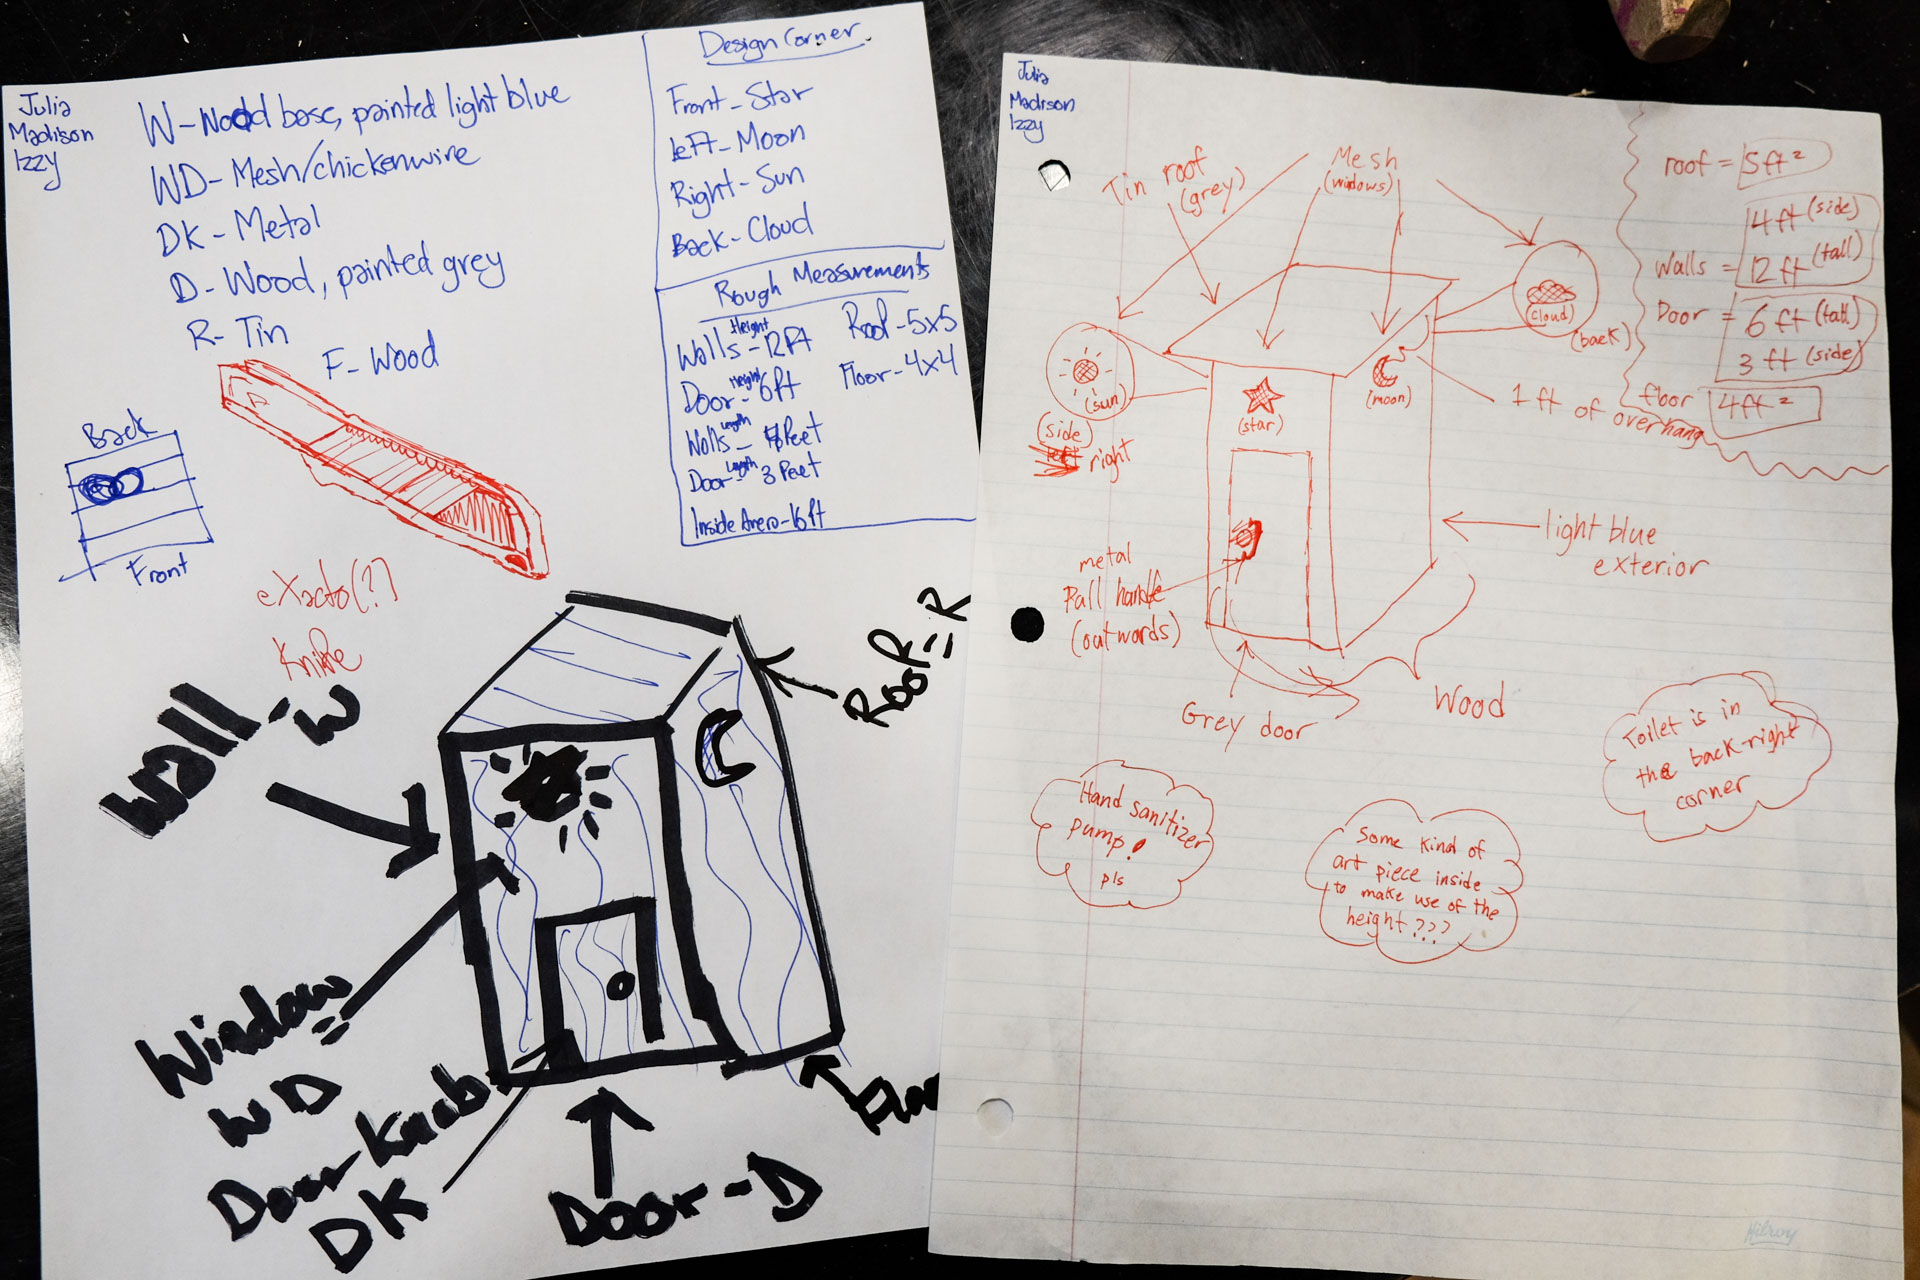 Julia
Madison
Izzy
W-Wood base, painted light blue
WD-Mesh/chickenwire
DK-Metal
D-Wood, painted grey
R-Tin
F-Wood
Design Corner
Front-Star
Left-Moon
Right-Sun
Back-Cloud
Rough Measurements
Walls Height-12Ft
Door-Height 6ft
Walls Length- Feet
Door-Length 3 Feet
Inside Area-16ft
Roof-5x5
Floor-4x4
Back
Front
eXacto(?)
Knife
Wall-W
Roof=R
Window
WD
Door Knob
DK
Door-D
Julia
Madison
Izzy
Tin roof
(grey)
Mesh
(windows)
roof = 5ft²
Walls = 4ft (side)
12ft (tall)
Door = 6ft (tall)
3 ft (side)
floor 4ft²
(cloud)
(back)
(sun)
(side)
left right
(star)
(moon)
1 ft of overhang
light blue
exterior
metal
Pull handle
(outwords)
Grey door
Wood
Toilet is in
the back-right
corner
Hand sanitizer
pump!
pls
Some kind of
art piece inside
to make use of the
height???
Hilroy